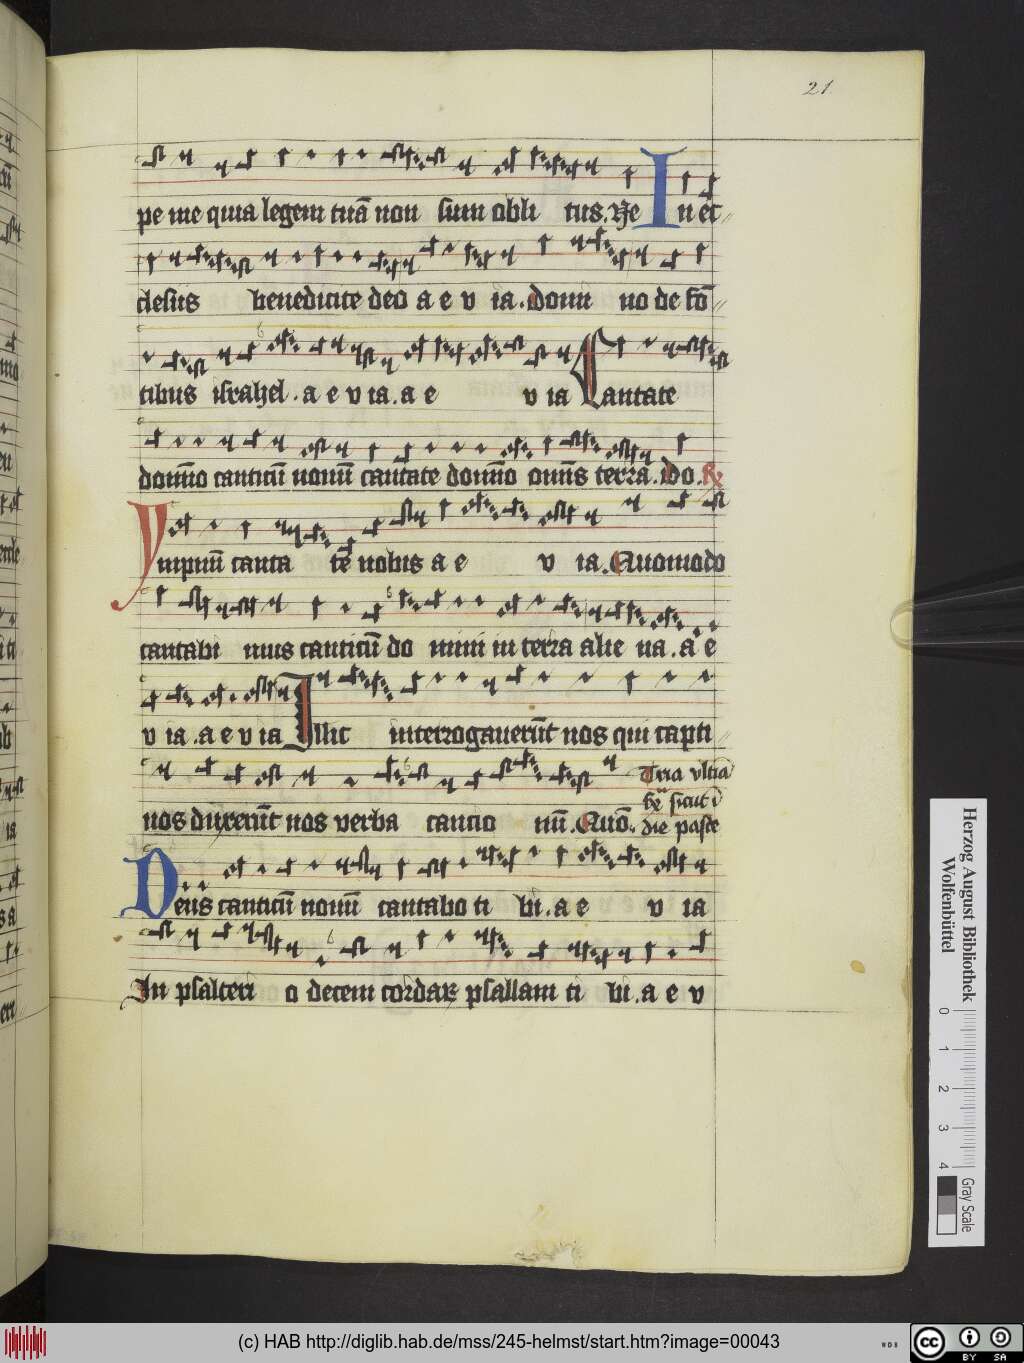 21
pe me quia legem tuā non sum obli tus. Ne In ec
clesiis benedicite deo a e v ia. Domi no de fō
tibus israhel. a e v ia. a e v ia Cantate
domīo canticū nouū cantate domīo omīs terra. Do. ℟
Ympnū canta te nobis a e v ia. Quomodo
cantabi mus canticū do mini in terra alie na. a e
v ia. a e v ia Illic interrogauerūt nos qui capti
nos duxerūt nos verba cancio nū. Quō.
Tria vltīa
sicut ī
die pasce
Deus canticū nouū cantabo ti bi. a e v ia
In psalteri o decem cordarꝝ psallam ti bi. a e v
Herzog August Bibliothek
Wolfenbüttel
0 1 2 3 4
Gray Scale
(c) HAB http://diglib.hab.de/mss/245-helmst/start.htm?image=00043
WDB
cc BY SA